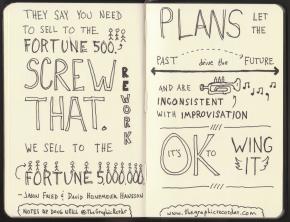 THEY SAY YOU NEED
TO SELL TO THE
FORTUNE 500.
SCREW
THAT.
REWORK
WE SELL TO THE
FORTUNE 5,000,000
- JASON FRIED & DAVID HEINEMEIER HANSSON
NOTES BY DOUG NEILL @TheGraphicRecorder
PLANS LET
THE
PAST drive the FUTURE
AND ARE
INCONSISTENT
WITH IMPROVISATION
IT'S OK TO WING
IT
www.thegraphicrecorder.com